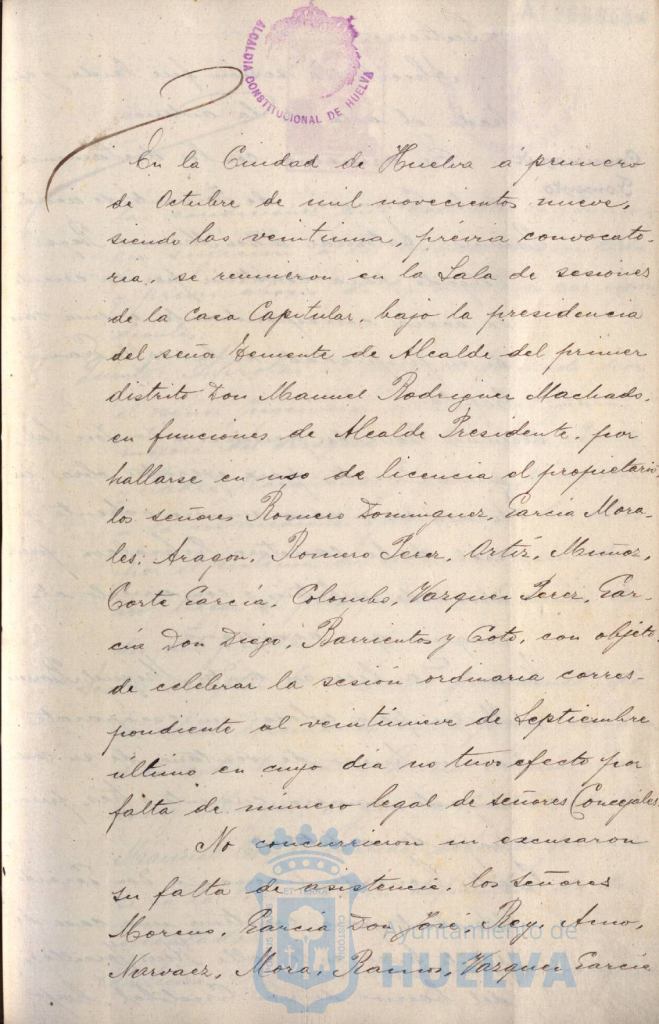 ALCALDIA CONSTITUCIONAL DE HUELVA
En la Ciudad de Huelva á primero
de Octubre de mil novecientos nueve,
siendo las veintiuna, prévia convocato-
ria, se reunieron en la Sala de sesiones
de la Casa Capitular, bajo la presidencia
del señor Teniente de Alcalde del primer
distrito Don Manuel Rodriguez Machado,
en funciones de Alcalde Presidente, por
hallarse en uso de licencia el propietario,
los señores Romero Dominguez, Garcia Mora-
les, Aragon, Romero Perez, Ortíz, Muñoz,
Corte García, Colombo, Vazquez Perez, Gar-
cía Don Diego, Barrientos y Coto, con objeto
de celebrar la sesión ordinaria corres-
pondiente al veintinueve de Septiembre
último en cuyo dia no tuvo efecto por
falta de número legal de señores Concejales.
No concurrieron ni excusaron
su falta de asistencia, los señores
Moreno, García Don José, Rey, Amo,
Narvaez, Mora, Ramos, Vazquez García
Ayuntamiento de
HUELVA